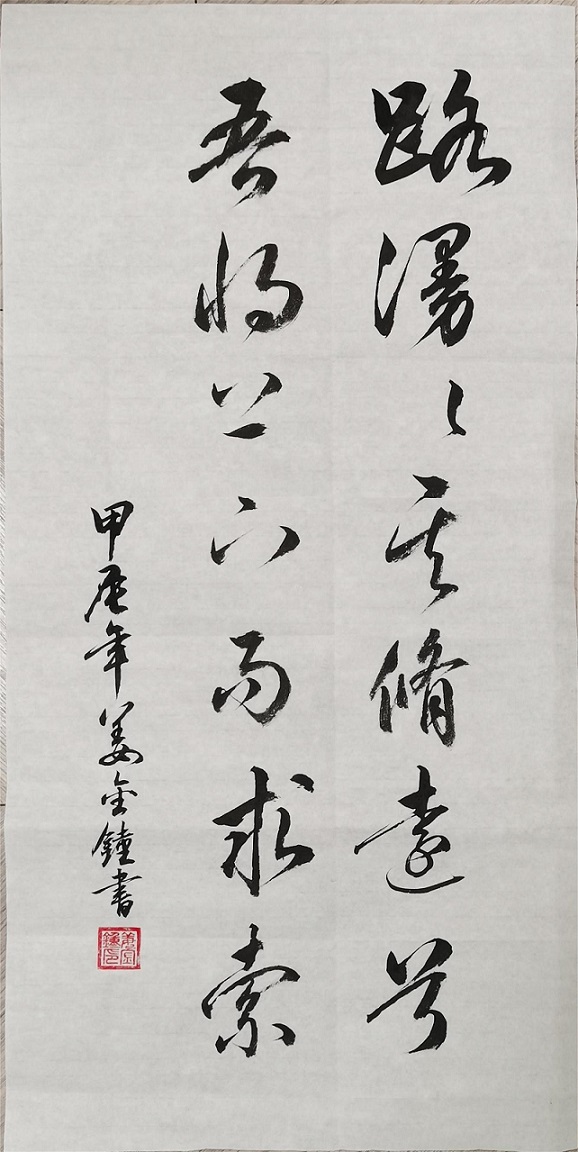 路漫々其脩遠兮
吾將上下而求索
甲辰年姜金鐘書